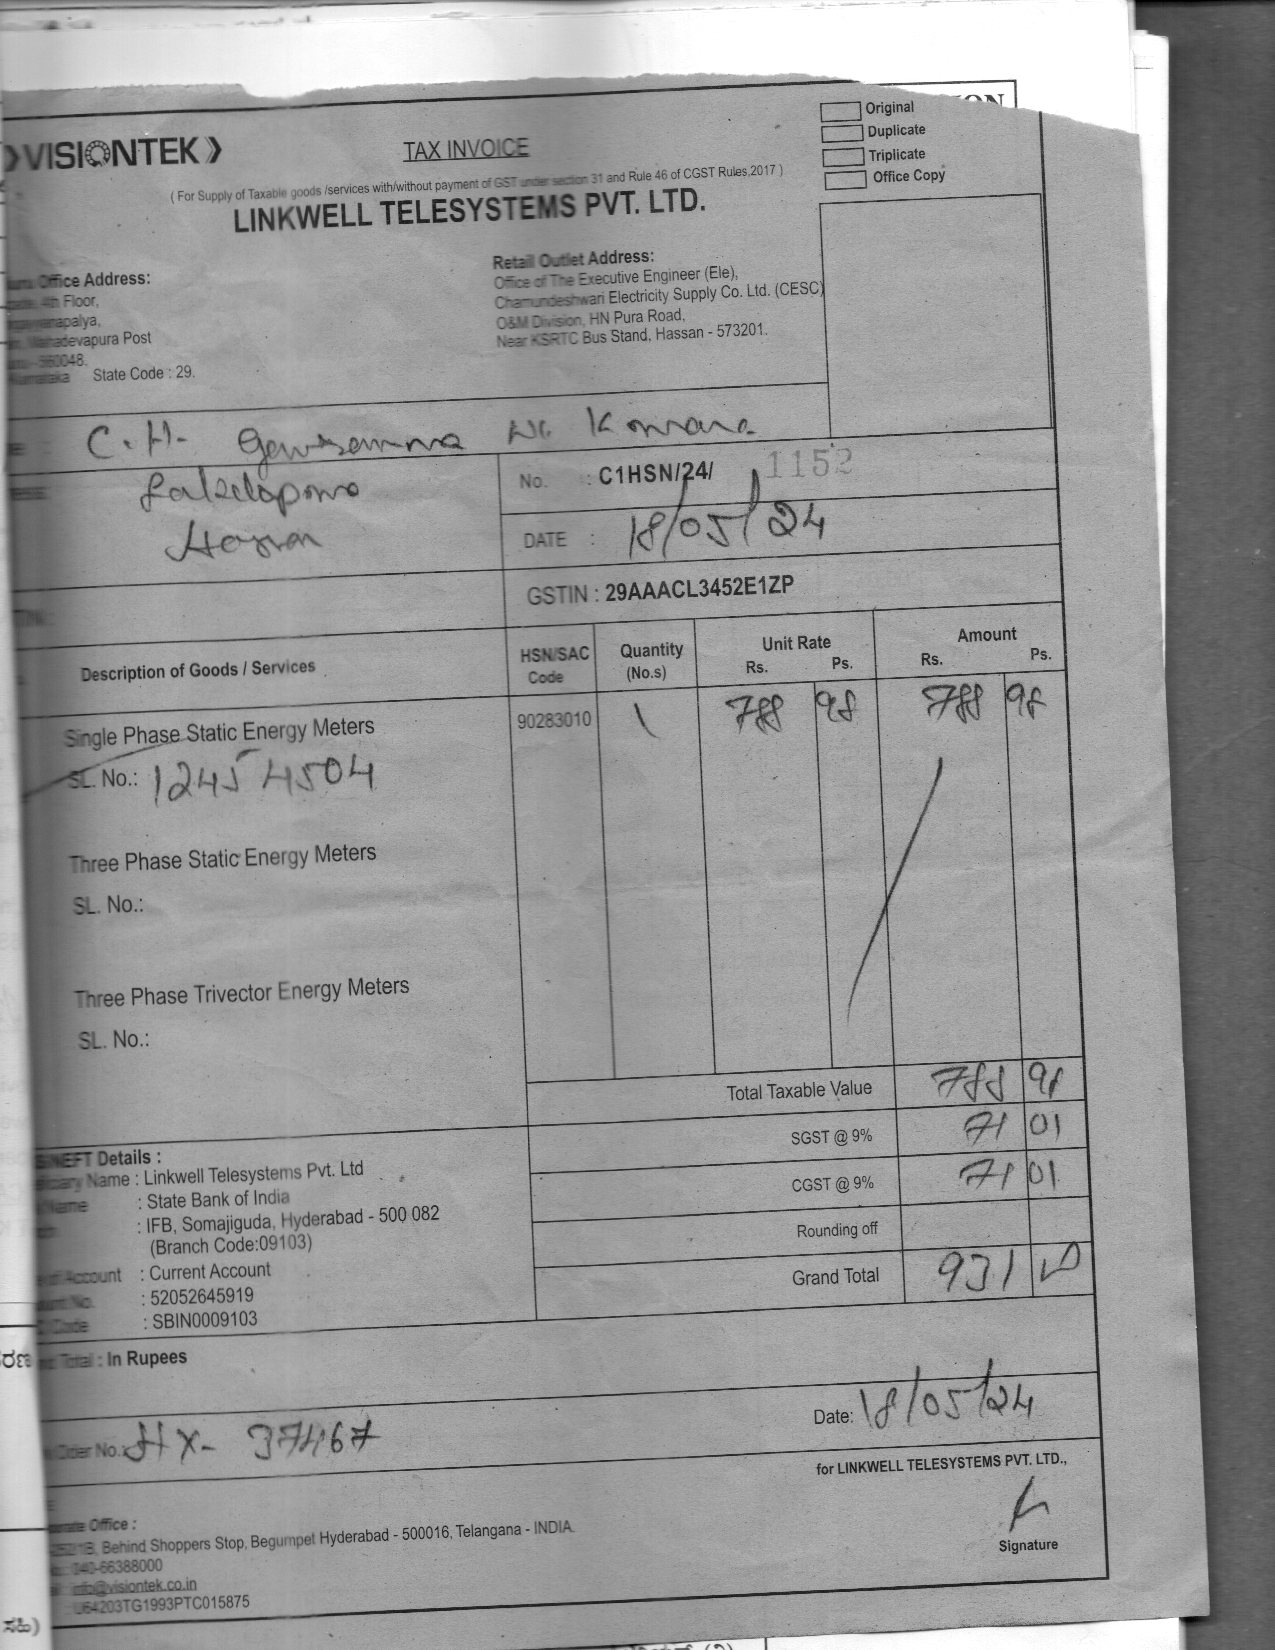 VISIONTEK
TAX INVOICE
Original
Duplicate
Triplicate
Office Copy
( For Supply of Taxable goods /services with/without payment of GST under section 31 and Rule 46 of CGST Rules,2017 )
LINKWELL TELESYSTEMS PVT. LTD.
Office Address:
4th Floor,
Mahadevapura Post
560048.
Karnataka State Code : 29.
Retail Outlet Address:
Office of The Executive Engineer (Ele),
Chamundeshwari Electricity Supply Co. Ltd. (CESC)
O&M Division, HN Pura Road,
Near KSRTC Bus Stand, Hassan - 573201.
C.H.
No. : C1HSN/24/ 1152
DATE : 18/05/24
GSTIN : 29AAACL3452E1ZP
Description of Goods / Services HSN/SAC Code Quantity (No.s) Unit Rate Rs. Ps. Amount Rs. Ps.
Single Phase Static Energy Meters 90283010 1 788 98 788 98
SL. No.: 12454504
Three Phase Static Energy Meters
SL. No.:
Three Phase Trivector Energy Meters
SL. No.:
Total Taxable Value 788 98
SGST @ 9% 71 01
CGST @ 9% 71 01
Rounding off
Grand Total 931
NEFT Details :
Name : Linkwell Telesystems Pvt. Ltd
Name : State Bank of India
: IFB, Somajiguda, Hyderabad - 500 082
(Branch Code:09103)
Account : Current Account
: 52052645919
Code : SBIN0009103
Total : In Rupees
Order No.: HX- 37467
Date: 18/05/24
for LINKWELL TELESYSTEMS PVT. LTD.,
Signature
Office :
Behind Shoppers Stop, Begumpet Hyderabad - 500016, Telangana - INDIA.
040-66388000
info@visiontek.co.in
U64203TG1993PTC015875